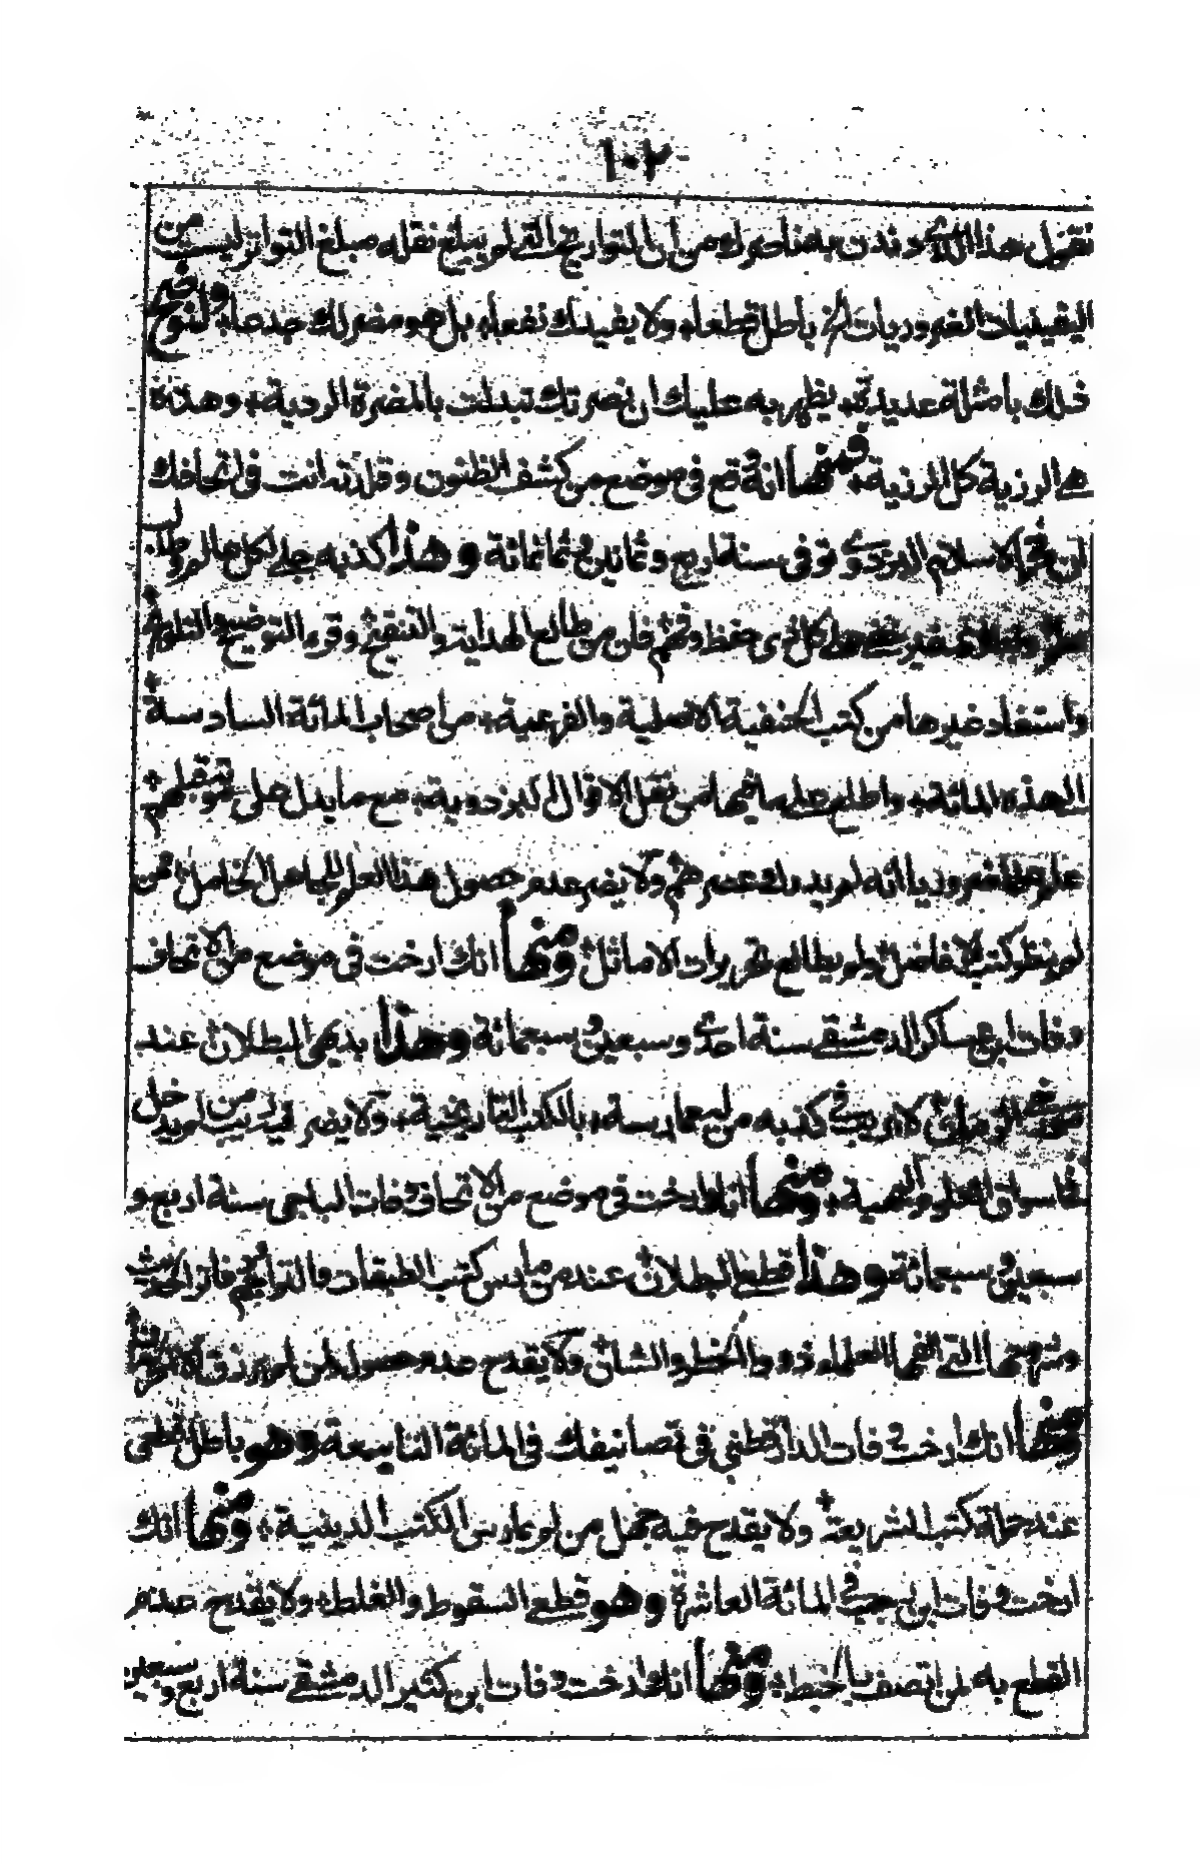 ١٠٢
نقول هذا الذي من ان التواريخ التي لم يبلغ نقله مبلغ التواتر ليست من
اليقينيات الضروريات الخ باطل قطعا ولا يفيدك نفعا بل هو مضر لك جدعا ولنوضح
ذلك بامثلة عديدة يظهر به عليك ان نصرتك تبدلت بالمضرة الردية وهذه
هي الرزية كل الرزية فمنها انه وقع في موضع من كشف الظنون وقلدته انت في اتحافك
ان فخر الاسلام البزدوي توفي سنة اربع وثمانين وثمانمائة وهذا كذبه جلي لكل طالب
كل ذي حفظ وفهم فان من طالع الهداية والتنقيح وقرء التوضيح والتلويح
واستفاد غيرها من كتب الحنفية الاصلية والفرعية من اصحاب المائة السادسة
الى هذه المائة واطلع على ما فيها من نقل الاقوال البزدوية مع ما يدل على توفيهم
علم علما ضروريا انه لم يدرك عصرهم ولا يضر عدم حصول هذا العلم للجاهل الخامل ممن
لم ينظر كتب الافاضل ولم يطالع تحريرات الاماثل ومنها انك ارخت في موضع من الاتحاف
وفات ابن عساكر الدمشقي سنة احدى وسبعين وسبعمائة وهذا بديهي البطلان عند
لا ريب في كذبه من له ممارسة بالكتب التاريخية ولا يضر فيه ريب من لم يدخل
في اسواق العلوم ومنها انك ارخت في موضع من الاتحاف وفات الباجي سنة اربع و
سبعين وسبعمائة وهذا قطعي البطلان عند من مارس كتب الطبقات والتراجم فات الحديث
وشروحها التي الفها العلماء ذووا الخطر والشان ولا يقدح عدم حصوله لمن لم يرزق
ومنها انك ارخت وفات الدارقطني في تصانيفك في المائة التاسعة وهو باطل قطعي
عند حملة كتب الشريعة ولا يقدح فيه جهل من لم يمارس الكتب الدينية ومنها انك
ارخت وفات ابن رجب في المائة العاشرة وهو قطعي السقوط والغلط ولا يقدح عدم
القطع به لمن اتصف بالخبط ومنها انك ارخت وفات ابن كثير الدمشقي سنة اربع وسبعين